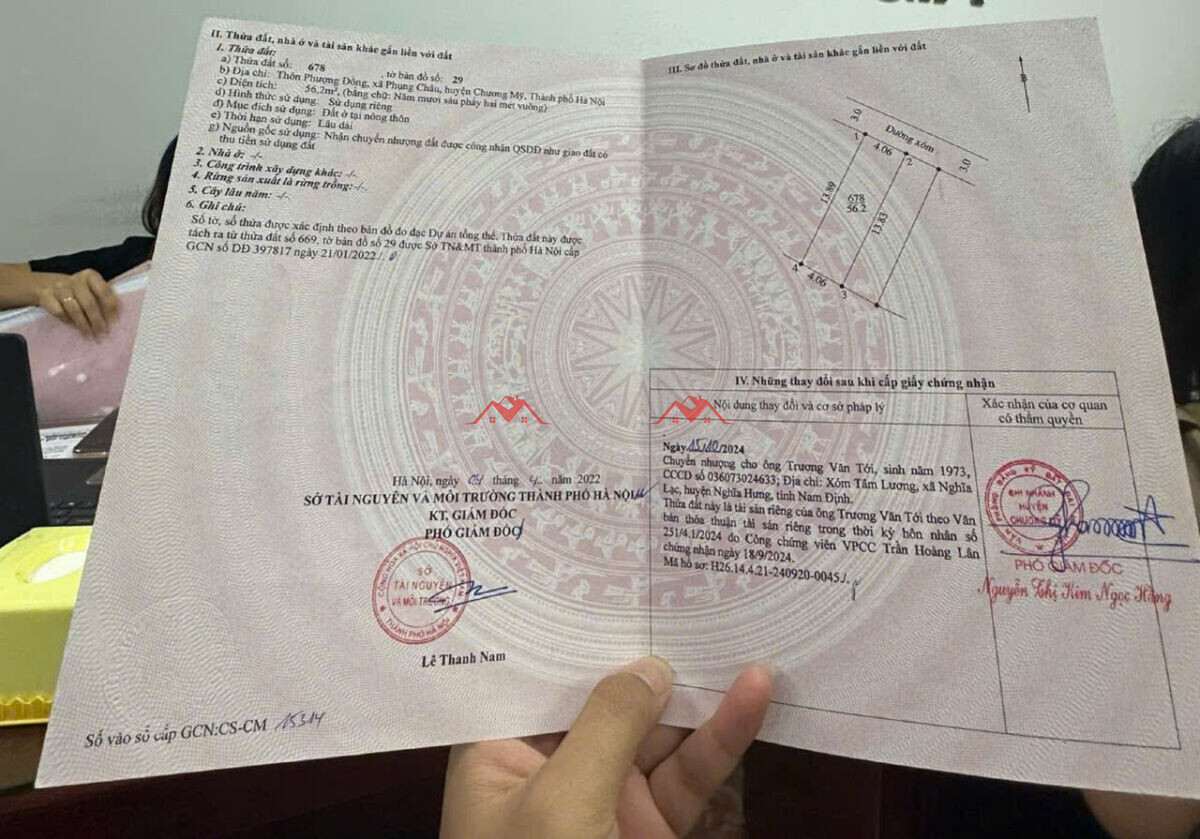 II. Thửa đất, nhà ở và tài sản khác gắn liền với đất
1. Thửa đất:
a) Thửa đất số: 678 , tờ bản đồ số: 29
b) Địa chỉ: Thôn Phượng Đồng, xã Phụng Châu, huyện Chương Mỹ, Thành phố Hà Nội
c) Diện tích: 56,2m², (bằng chữ: Năm mươi sáu phảy hai mét vuông)
d) Hình thức sử dụng: Sử dụng riêng
đ) Mục đích sử dụng: Đất ở tại nông thôn
e) Thời hạn sử dụng: Lâu dài
g) Nguồn gốc sử dụng: Nhận chuyển nhượng đất được công nhân QSDĐ như giao đất có
thu tiền sử dụng đất
2. Nhà ở: -/-
3. Công trình xây dựng khác: -/-
4. Rừng sản xuất là rừng trồng: -/-
5. Cây lâu năm: -/-
6. Ghi chú:
Số tờ, số thửa được xác định theo bản đồ đo đạc Dự án tổng thể. Thửa đất này được
tách ra từ thửa đất số 669, tờ bản đồ số 29 được Sở TN&MT thành phố Hà Nội cấp
GCN số DĐ 397817 ngày 21/01/2022./.
Hà Nội, ngày 04 tháng 4 năm 2022
SỞ TÀI NGUYÊN VÀ MÔI TRƯỜNG THÀNH PHỐ HÀ NỘI
KT. GIÁM ĐỐC
PHÓ GIÁM ĐỐC
SỞ
TÀI NGUYÊN
VÀ MÔI TRƯỜNG
THÀNH PHỐ HÀ NỘI
Lê Thanh Nam
Số vào sổ cấp GCN:CS-CM 15314
III. Sơ đồ thửa đất, nhà ở và tài sản khác gắn liền với đất
B
3.0
Đường xóm
3.0
1
4.06
2
13.89
678
56.2
13.83
4
4.06
3
IV. Những thay đổi sau khi cấp giấy chứng nhận
Nội dung thay đổi và cơ sở pháp lý
Xác nhận của cơ quan
có thẩm quyền
Ngày 15/10/2024
Chuyển nhượng cho ông Trương Văn Tới, sinh năm 1973,
CCCD số 036073024633; Địa chỉ: Xóm Tâm Lương, xã Nghĩa
Lạc, huyện Nghĩa Hưng, tỉnh Nam Định.
Thửa đất này là tài sản riêng của ông Trương Văn Tới theo Văn
bản thỏa thuận tài sản riêng trong thời kỳ hôn nhân số
251/4.1/2024 do Công chứng viên VPCC Trần Hoàng Lân
chứng nhận ngày 18/9/2024.
Mã hồ sơ: H26.14.4.21-240920-0045./.
VĂN PHÒNG ĐĂNG KÝ ĐẤT ĐAI
CHI NHÁNH
HUYỆN
CHƯƠNG MỸ
PHÓ GIÁM ĐỐC
Nguyễn Thị Kim Ngọc Hằng